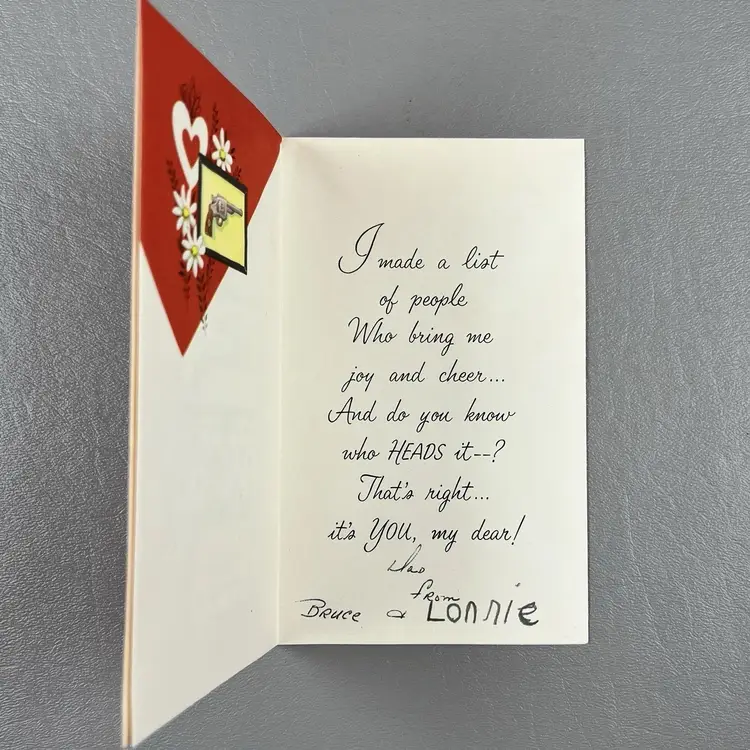 I made a list
of people
Who bring me
joy and cheer...
And do you know
who HEADS it--?
That's right...
it's YOU, my dear!
from
Bruce & Lonnie